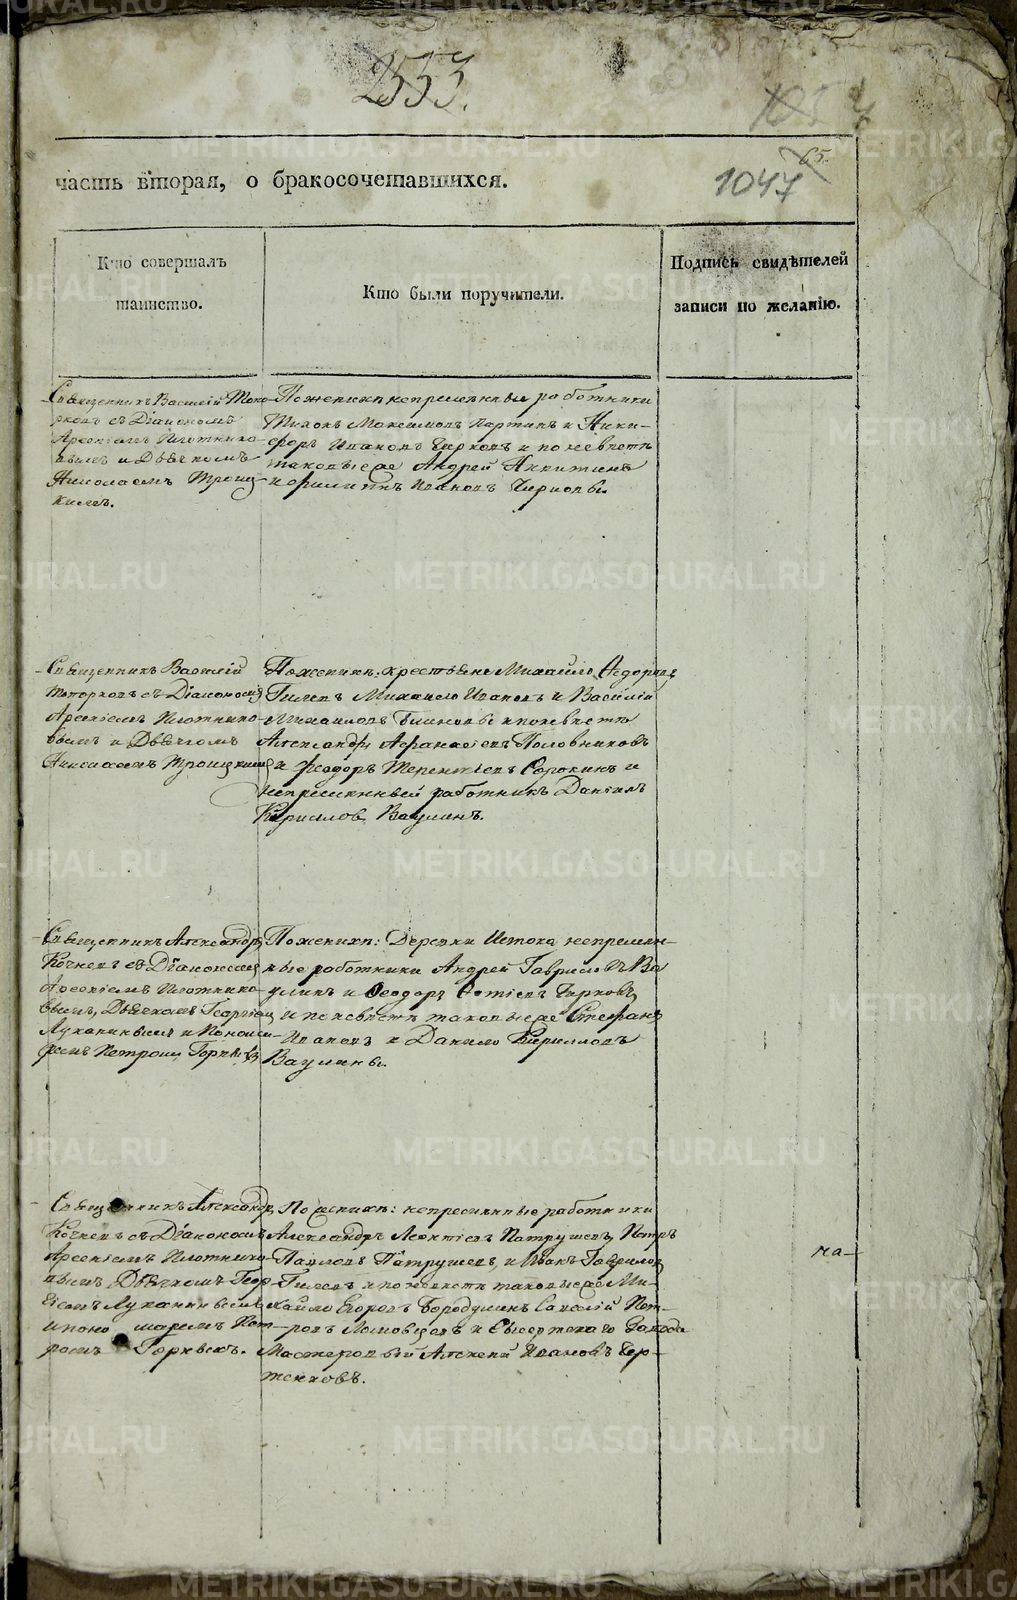 2553.
65.
1047
часть вторая, о бракосочетавшихся.
Кто совершалъ
таинство.
Кто были поручители.
Подпись свидѣтелей
записи по желанію.
Священникъ Василій Топо-
рковъ съ Діакономъ
Арсеніемъ Плотнико-
вымъ и Дьячкомъ
Николаемъ Троиц-
кимъ.
По женихѣ непремѣнные работники
Тихонъ Максимовъ и Ники-
форъ Ивановъ Чирковъ и по невѣстѣ
таковые же Андрей Никитинъ
и Ивановъ Чирковы.
Священникъ Василій
Топорковъ съ Діакономъ
Арсеніемъ Плотнико-
вымъ и Дьячкомъ
Николаемъ Троицкимъ
По женихѣ: крестьяне Михайло Федоровъ
Гилевъ Михайло Ивановъ и Василій
Михайловъ Блиновы и по невѣстѣ
Александръ Афанасьевъ Половниковъ
и Феодоръ Терентьевъ Сорокинъ и
непремѣнный работникъ Данилъ
Кириловъ Ваулинъ.
Священникъ Александръ
Кочневъ съ Діакономъ
Арсеніемъ Плотнико-
вымъ, Дьячкомъ Георгіемъ
Луканинымъ и Понома-
ремъ Петромъ
По женихѣ: Деревни Истока непремѣн-
ные работники Андрей Гавриловъ Ва
улинъ и Феодоръ Фотіевъ Чирковъ
и по невѣстѣ таковые же Стефанъ
Ивановъ и Данило Кирилловъ
Ваулины.
Священникъ Александръ
Кочневъ съ Діакономъ
Арсеніемъ Плотнико-
вымъ Дьячкомъ Геор-
гіемъ Луканинымъ
и поно маремъ Пет-
ромъ
По женихѣ: непремѣнные работники
Александръ Леонтіевъ Патрушевъ, Петръ
Павловъ Патрушевъ, и Иванъ Гавриловъ
Гилевъ и по невѣстѣ таковые же Ми-
хайло Егоровъ Бородулинъ Савелій Пет-
ровъ и Сысертскаго Завода
Мастеровый Алексѣй Ивановъ Чер-
теновъ.
на-
METRIKI.GASO-URAL.RU